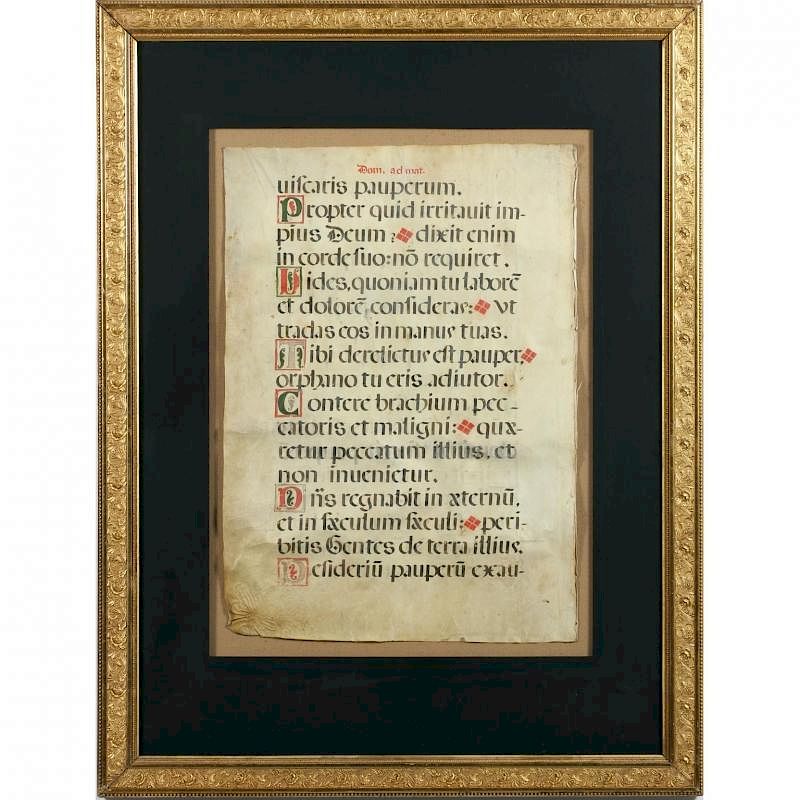 Dom. ad mat.
uiscaris pauperum.
Propter quid irritauit im-
pius Deum? dixit enim
in corde suo: nō requiret.
Vides, quoniam tu laborē
et dolorē, consideras: vt
tradas eos in manus tuas.
Tibi derelictus est pauper,
orphano tu eris adiutor.
Contere brachium pec-
catoris et maligni: quæ-
retur peccatum illius, et
non inuenietur.
Dñs regnabit in æternū,
et in sæculum sæculi: peri-
bitis Gentes de terra illius.
Desideriū pauperū exau-